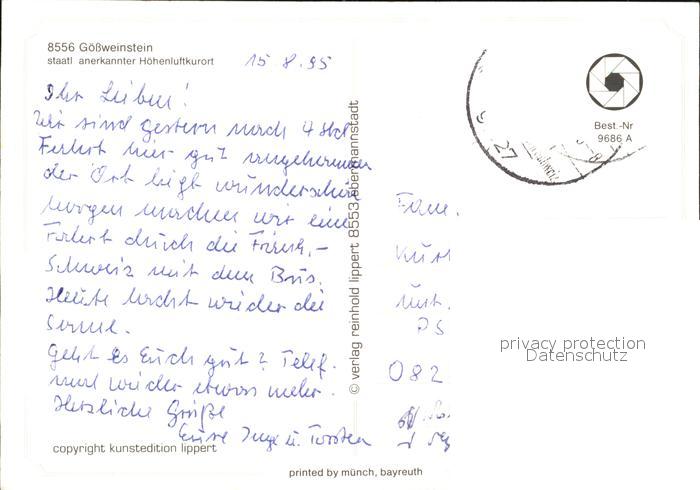 8556 Gößweinstein
staatl anerkannter Höhenluftkurort
15 8.95
Ihr Lieben!
Wir sind gestern nach 4 Std
Fahrt hier gut angekommen
der Ort liegt wunderschön
morgen machen wir eine
Fahrt durch die Fränk.-
Schweiz mit dem Bus.
Heute lacht wieder die
Sonne.
Geht es Euch gut? Telef.
mal wieder etwas mehr.
Herzliche Grüße
Eure Inge u. Torsten
copyright kunstedition lippert
© verlag reinhold lippert 8553 ebermannstadt
printed by münch, bayreuth
Best.-Nr
9686 A
27
Fam.
Kurt
PS
082
privacy protection
Datenschutz